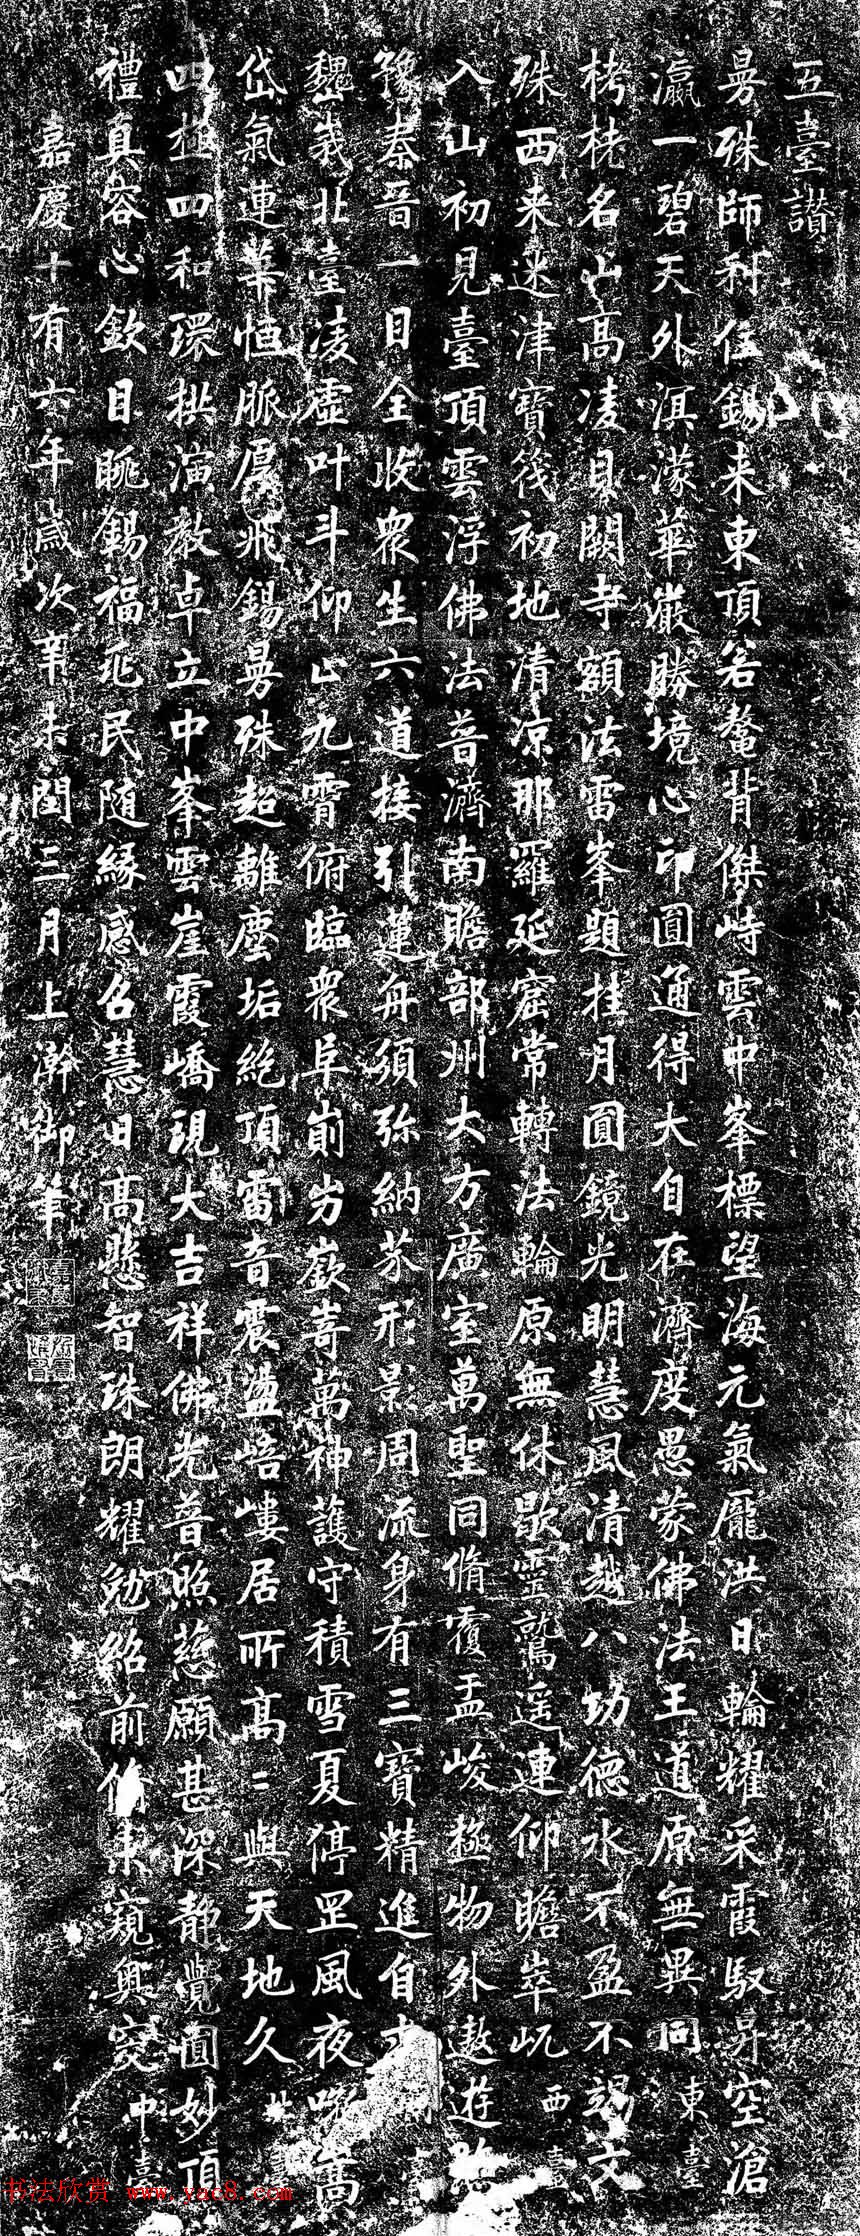 五臺讃
曼殊師利住錫来東頂若鼇背傑峙雲中峯標望海元氣龐洪日輪耀采霞馭昇空滄
瀛一碧天外溟濛華嚴勝境心印圓通得大自在濟度愚蒙佛法王道原無異同 東臺
栲栳名山高凌貝闕寺額法雷峯題挂月圓鏡光明慧風清越八功德水不盈不竭文
殊西来迷津寶筏初地清凉那羅延窟常轉法輪原無休歇靈鷲遥連仰瞻崒屼 西臺
入山初見臺頂雲浮佛法普濟南贍部州大方廣室萬聖同脩覆盂峻極物外遨遊
豫秦晉一日全收衆生六道接引蓮舟須弥納芥形影周流身有三寶精進自
巍峩北臺凌虚叶斗仰止九霄俯臨衆阜崱屴嶔㟢萬神護守積雪夏停罡風夜吼嵩
岱氣連華恒脈厚飛錫曼殊超離塵垢絶頂雷音震盪嶁居所高〻與天地久 北
四極四和環拱演教卓立中峯雲崖霞嶠現大吉祥佛光普照慈願甚深静覺圓妙頂
禮真容心欽目眺錫福兆民随緣感召慧日高懸智珠朗耀勉紹前脩未窺奥窔 中臺
嘉慶十有六年歲次辛未閏三月上澣御筆
书法欣赏 www.yac8.com